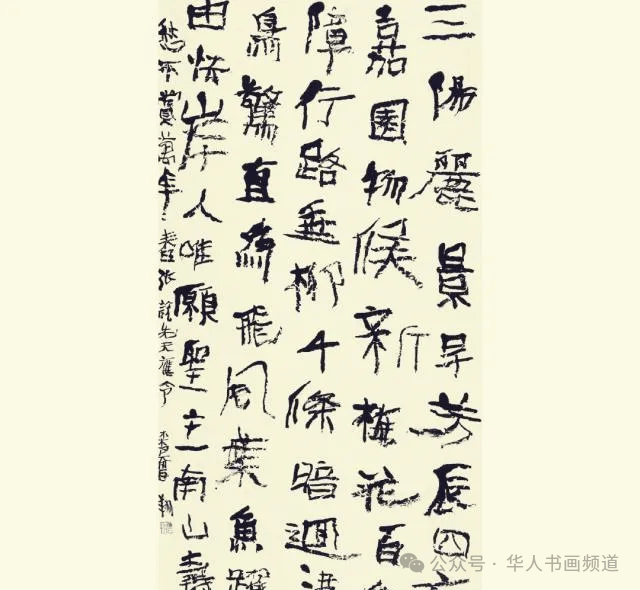 三陽麗景早芳辰四
嘉園物候新梅花百
障行路垂柳千條暗迴津
鳥驚直為飛風葉魚躍
由怯岸人唯願聖主南山壽
愁不賞萬年春 張說先天應令
公众号 · 华人书画频道